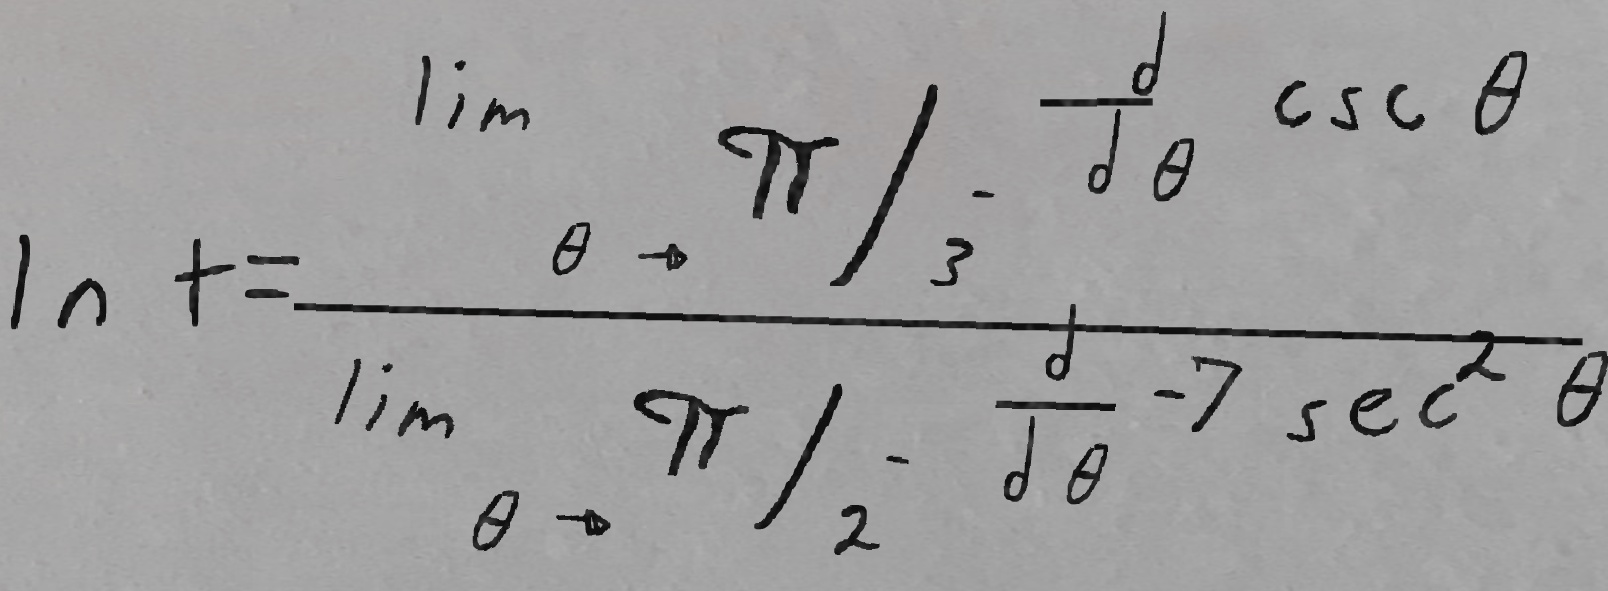 ln t = \frac{\lim_{\theta \to \pi/3^-} \frac{d}{d\theta} \csc \theta}{\lim_{\theta \to \pi/2^-} \frac{d}{d\theta} -7 \sec^2 \theta}